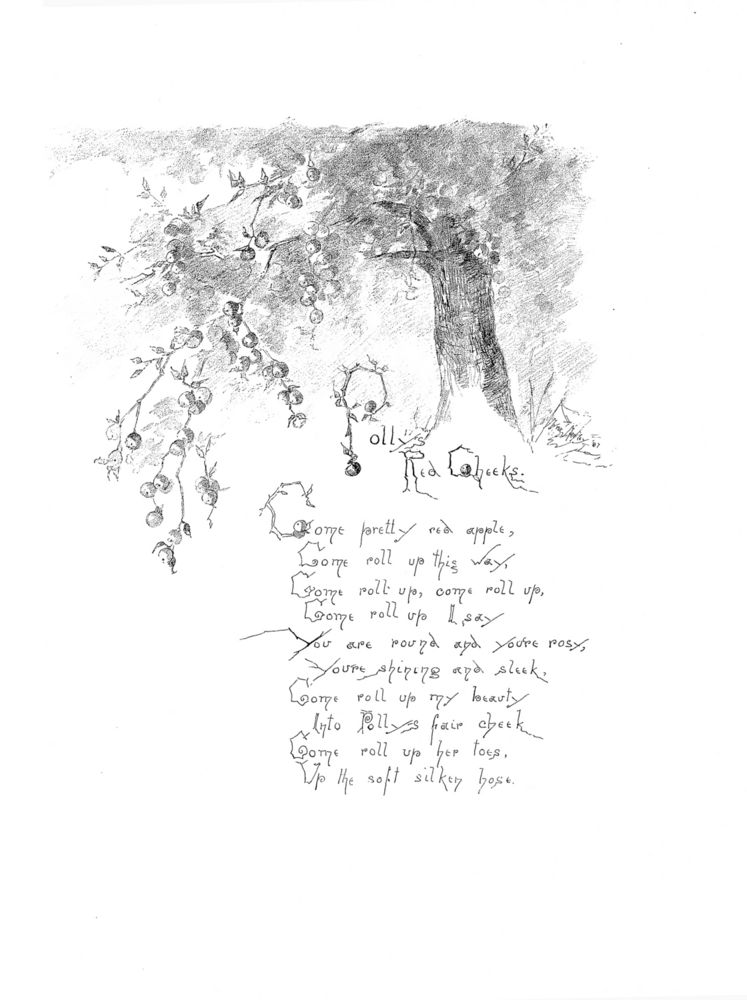 Polly's
Red Cheeks.
Come pretty red apple,
Come roll up this way,
Come roll up, come roll up,
Come roll up I say
You are round and you're rosy,
You're shining and sleek,
Come roll up my beauty
Into Polly's fair cheek
Come roll up her toes,
Up the soft silken hose.